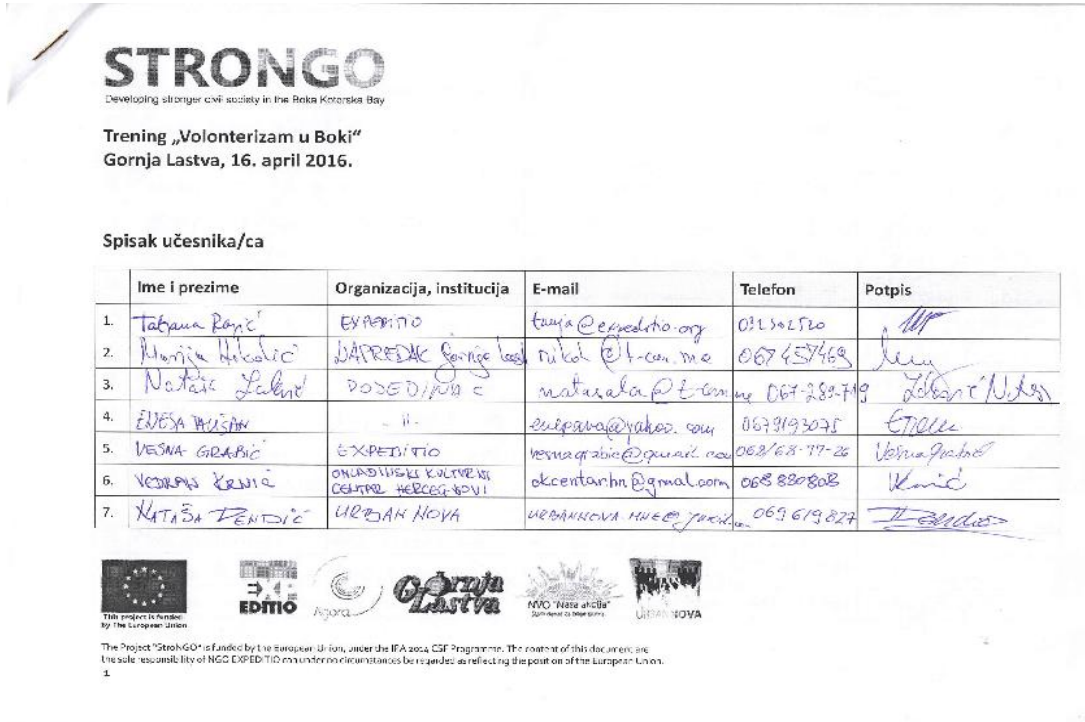 STRONGO
Developing stronger civil society in the Boka Kotorska Bay
Trening „Volonterizam u Boki“
Gornja Lastva, 16. april 2016.
Spisak učesnika/ca
Ime i prezime Organizacija, institucija E-mail Telefon Potpis
1. Tatjana Rajić EXPEDITIO tanja@expeditio.org
2. Marija Nikolić NAPREDAK Gornja Last nikol@t-com.me 067 457469
3. Nataša POJEDINAC 067-289-719
4. ENESA - 11 - 0679193075
5. VESNA GRABIĆ EXPEDITIO vesnagrabic@gmail.com 068/68-77-26 Vesna Grabić
6. VEDRAN KRNIĆ OMLADINSKI KULTURNI CENTAR HERCEG NOVI okcentar.hn@gmail.com 068 880808
7. NATAŠA DENDIĆ URBAN NOVA 069 619 827 Dendić
This project is funded
by The European Union
EXP
EDITIO
Agora
Gornja
Lastva
NVO "Naša akcija"
URBANNOVA
The Project "StroNGO" is funded by the European Union, under the IPA 2014 CSF Programme. The content of this document are
the sole responsibility of NGO EXPEDITIO can under no circumstances be regarded as reflecting the position of the European Union.
1